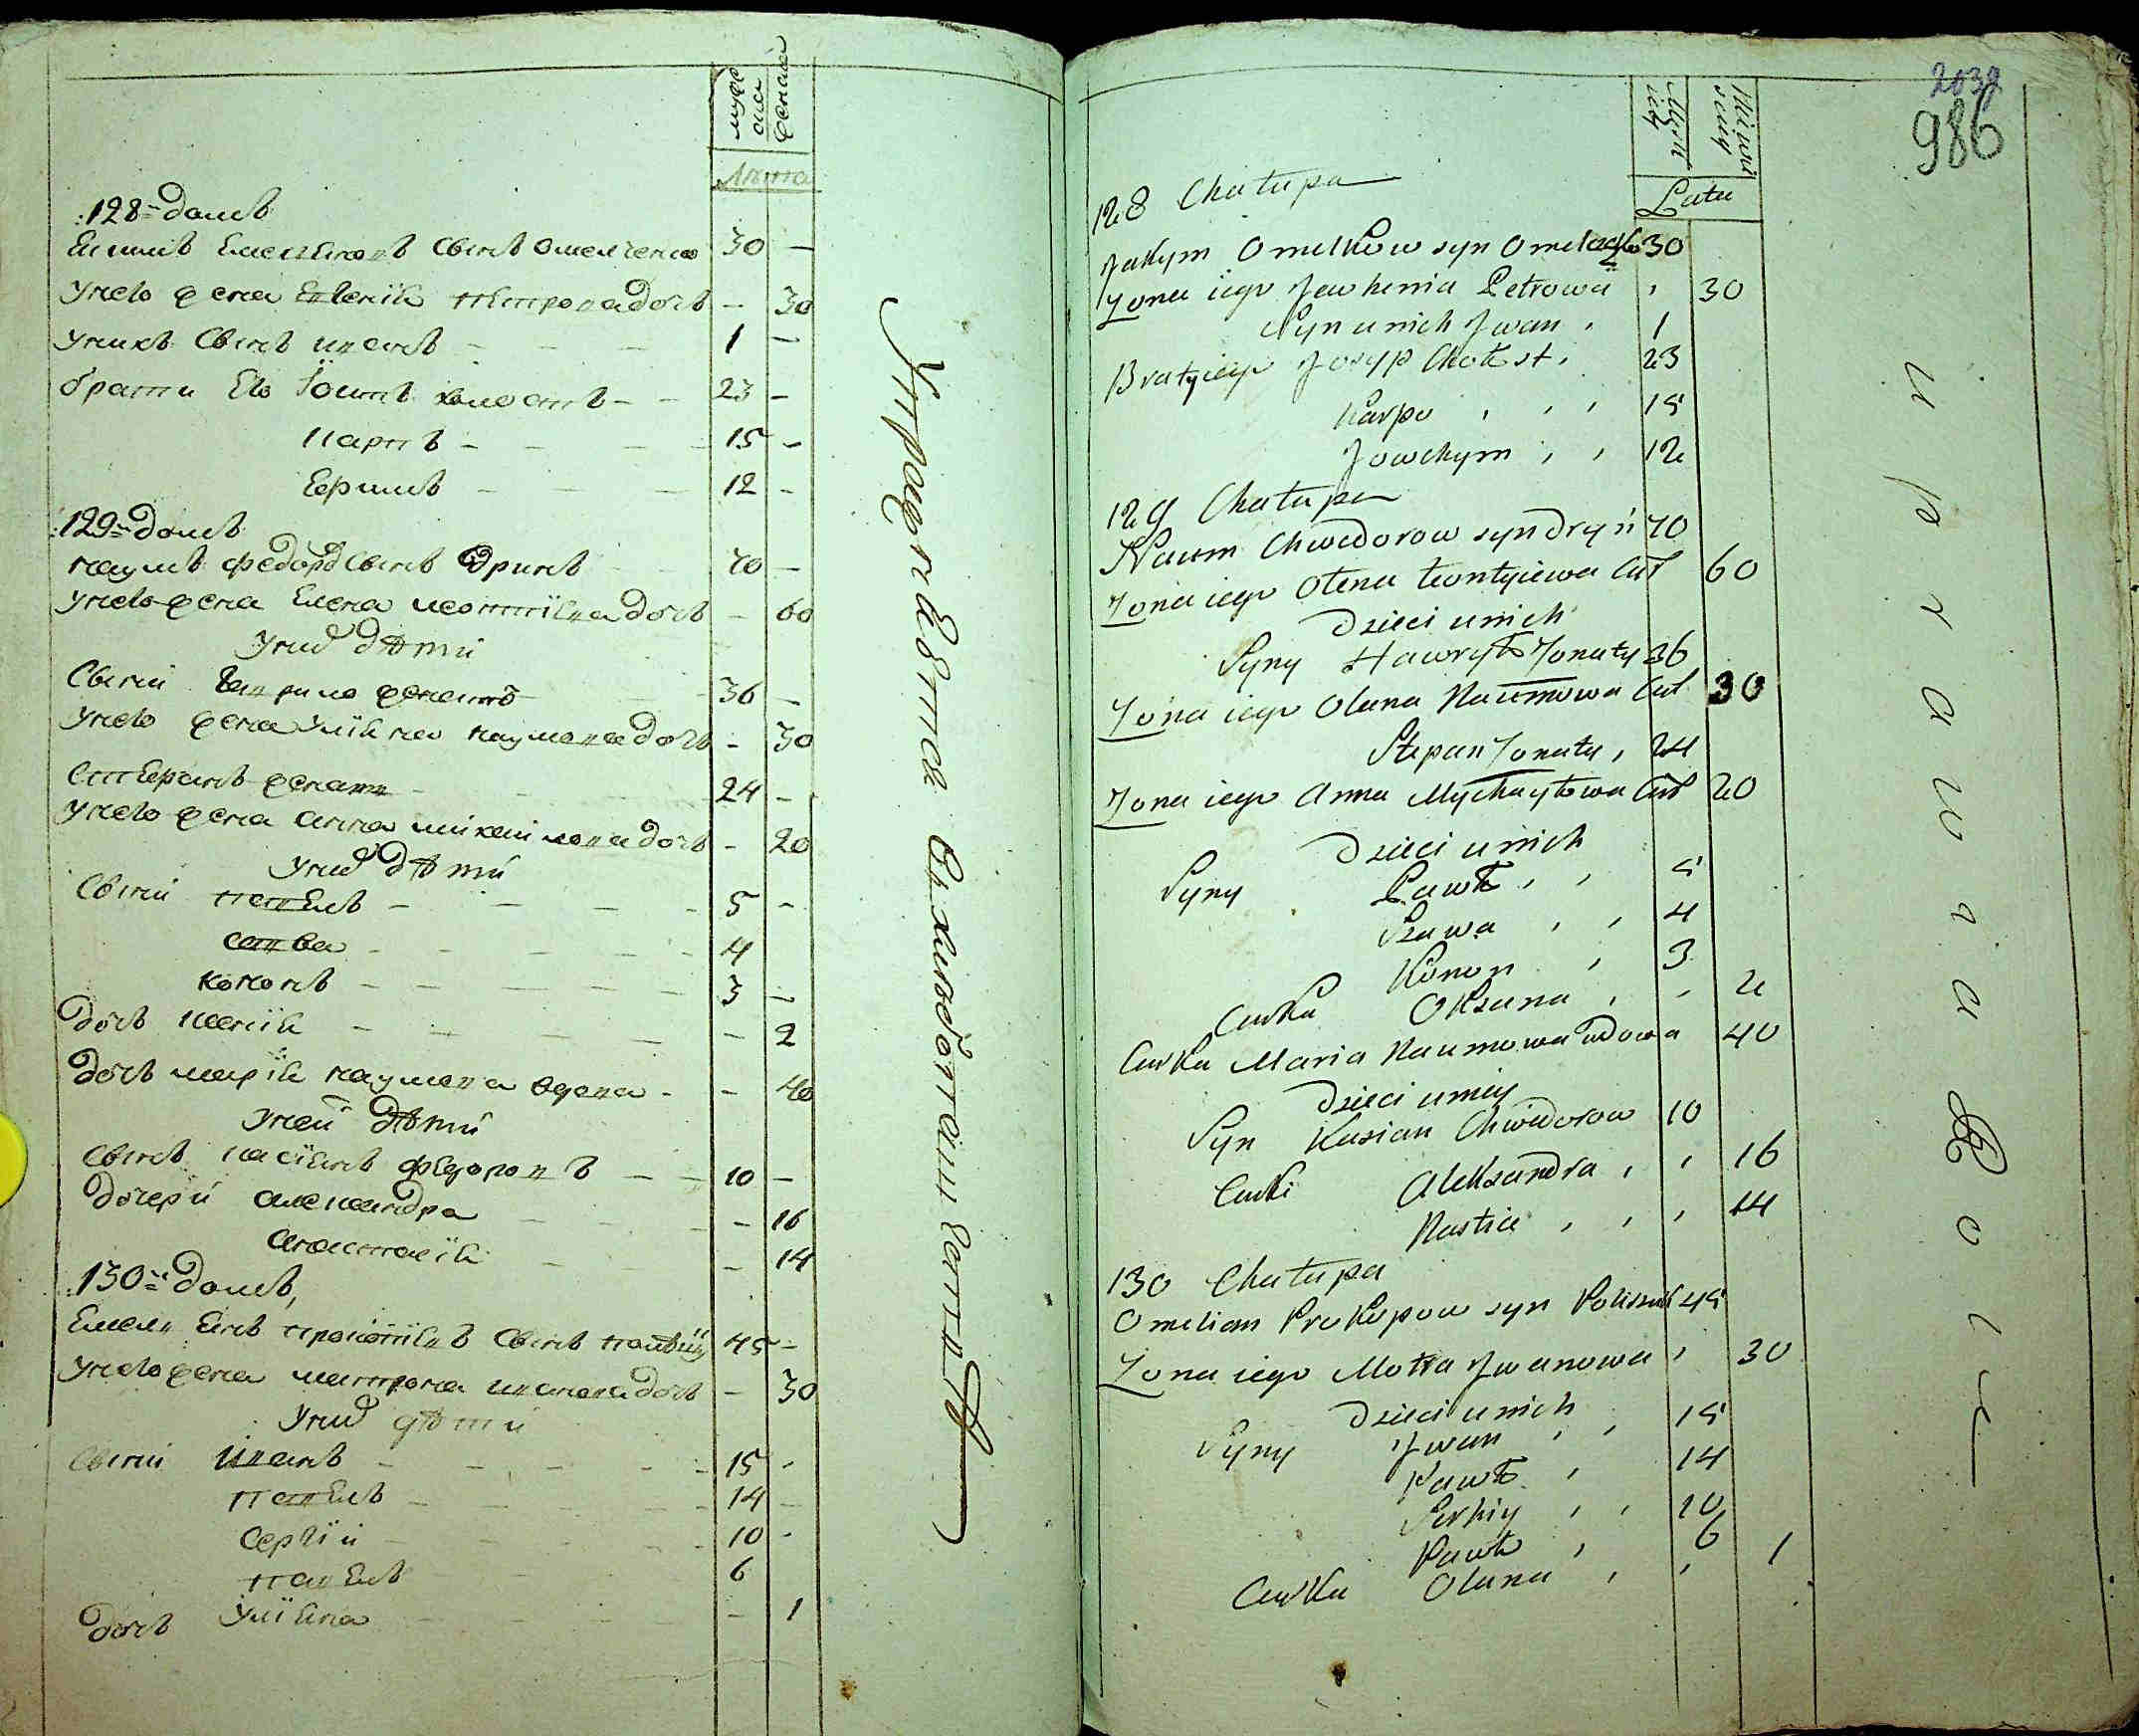 муже
ска
женска
Лѣта
128й домъ
Екимъ Емелияновъ сынъ Омелченко 30 —
У него жена Евгения Петрова дочь — 30
У нихъ сынъ Иванъ — — — 1 —
братя его Іосипъ холостъ — — 23 —
Карпъ — — — 15 —
Ефимъ — — — 12 —
129й домъ
Наумъ Федоровъ сынъ Дринь 70 —
У него жена Елена Леонтіева дочь — 60
У нихъ дѣти
Сыни Гаврило женатъ 36 —
У него жена Уліяна Наумова дочь — 30
Степанъ женатъ 24 —
У него жена Анна Михайлова дочь — 20
У нихъ дѣти
Сыни Павелъ — — — 5 —
Савва — — — 4
Кононъ — — — 3 —
дочь Ксенія — — — — 2
дочь Марія Наумова вдова — — 40
У неи дѣти
Сынъ Касіянъ Федоровъ — — 10 —
дочери Александра — 16
Анастасія — 14
130й домъ
Емелиянъ Прокопіевъ сынъ 45 —
У него жена Матрона Иванова дочь — 30
У нихъ дѣти
Сыни Иванъ — — — 15 —
Павелъ — — — 14 —
Сергій — — — 10 —
Павелъ 6
дочь Уліяна — 1
2038
986
Męzk
iey
Lata
128 Chałupa
Jakym Omelkow syn 30
Zona iego Jewhenia Petrowa , 30
Syn u nich Jwan , 1
Braty iego Josyp Chołost , 23
Karpo , , , 15
Jowchym , , 12
129 Chałupa
Naum Chwedorow syn Dryń 70
Zona iego Ołena Leontyiewa Cur 60
Dzieci u nich
Syny Hawryło Zonaty 36
Zona iego Olana Naumowa Cur 30
Stepan Zonaty , 24
Zona iego Anna Mychayłowa Cur 20
Dzieci u nich
Syny Pawło , , 5
Sawa , , 4
Konon , 3
Curka Oksana , , 2
Curka Maria Naumowa wdowa 40
Dzieci u niey
Syn Kasian Chwedorow 10
Curki Aleksandra , , 16
Nastia , , , 14
130 Chałupa
Omelian Prokopow syn 45
Zona iego Motra Jwanowa , 30
Dzieci u nich
Syny Jwan , , 15
Pawło , 14
Serhiy , , 10
Pawło , 6
Curka Olana , , 1